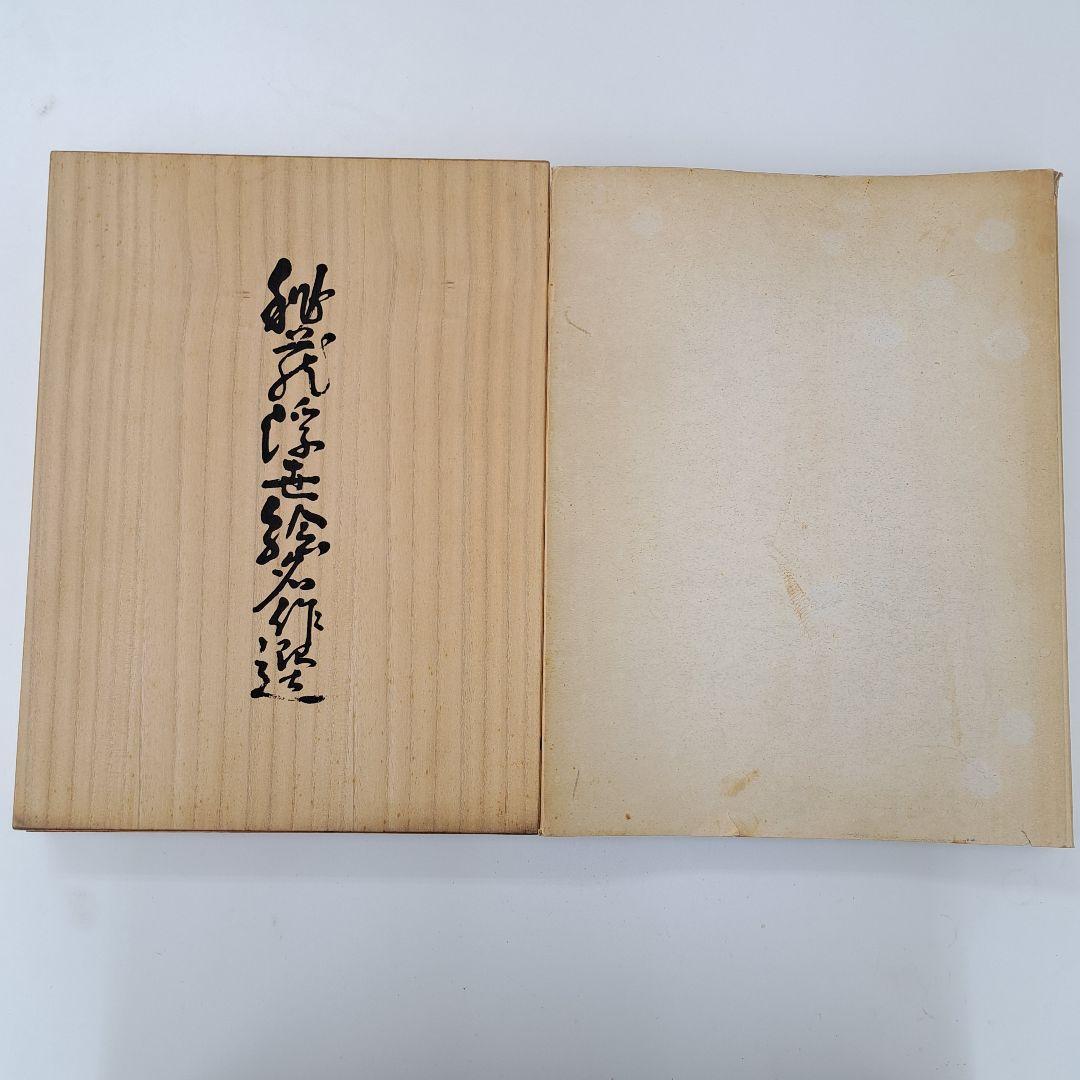 秘蔵浮世絵名作選